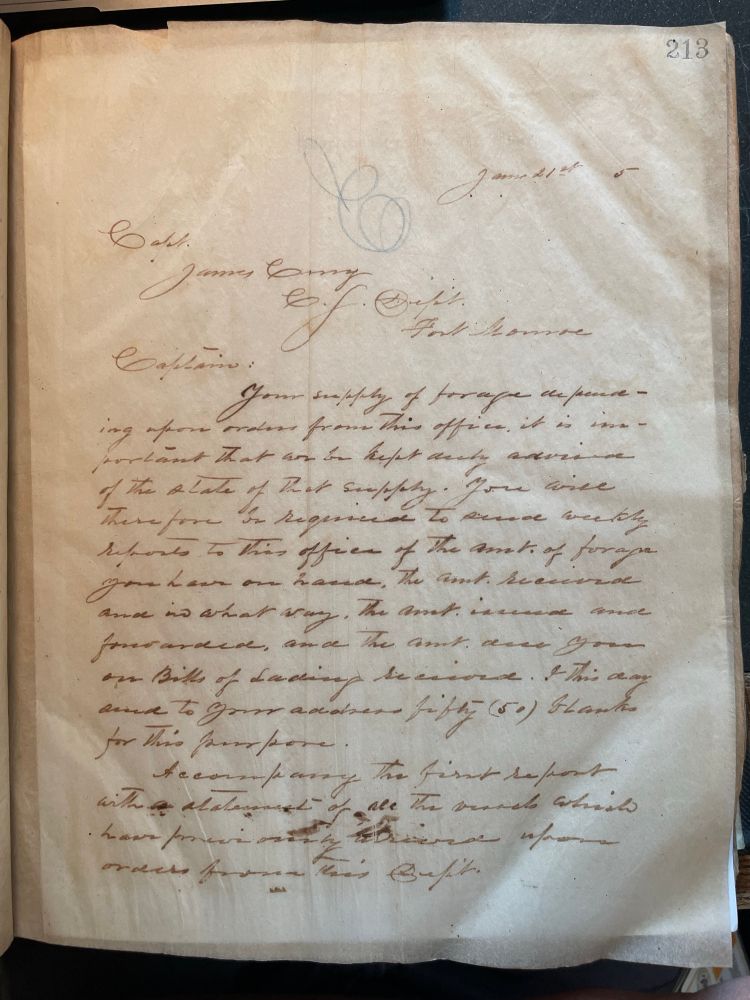 213
Jany 21st 5
Capt.
James Curry
C. S. Dept.
Fort Monroe
Captain:
Your supply of forage depend-
ing upon orders from this office, it is im-
portant that we be kept duly advised
of the state of that supply. You will
therefore be required to send weekly
reports to this office of the amt. of forage
you have on hand, the amt. received
and in what way, the amt. issued and
forwarded, and the amt. due you
on Bills of Lading received. I this day
send to your address fifty (50) blanks
for this purpose.
Accompany the first report
with a statement of all the vessels which
have previously arrived upon
orders from this Dept.